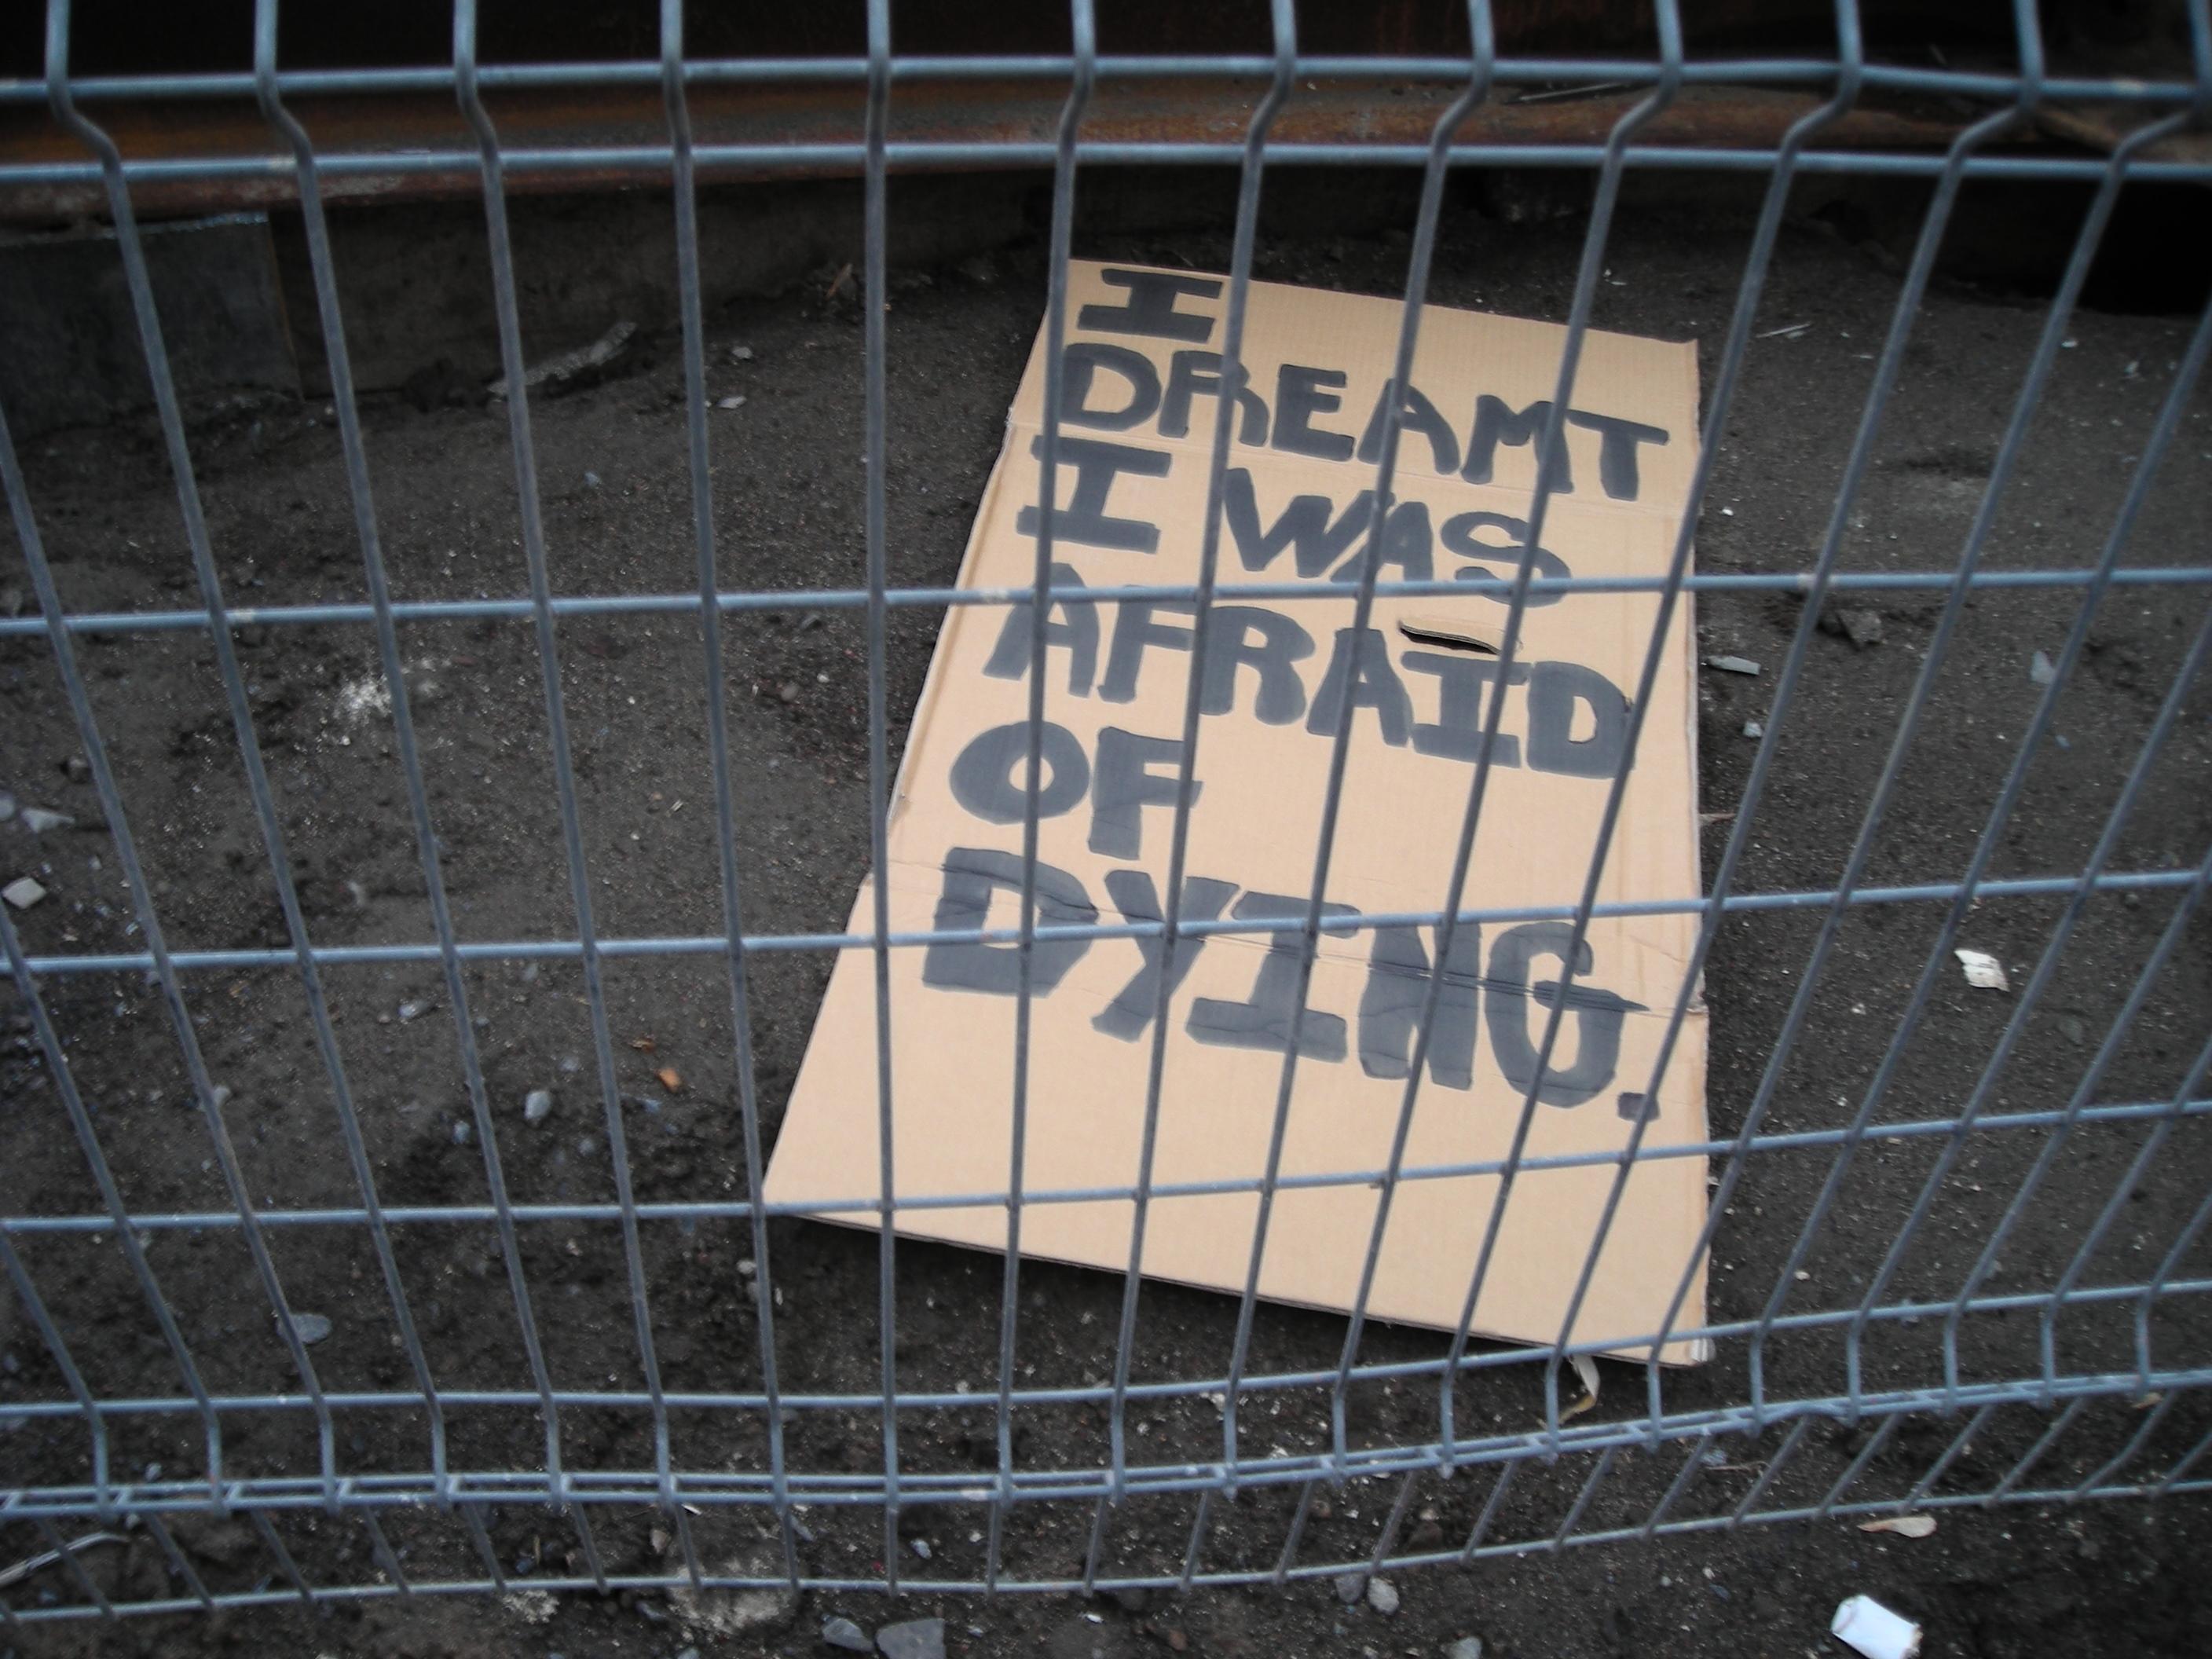 I
DREAMT
I WAS
AFRAID
OF
DYING.